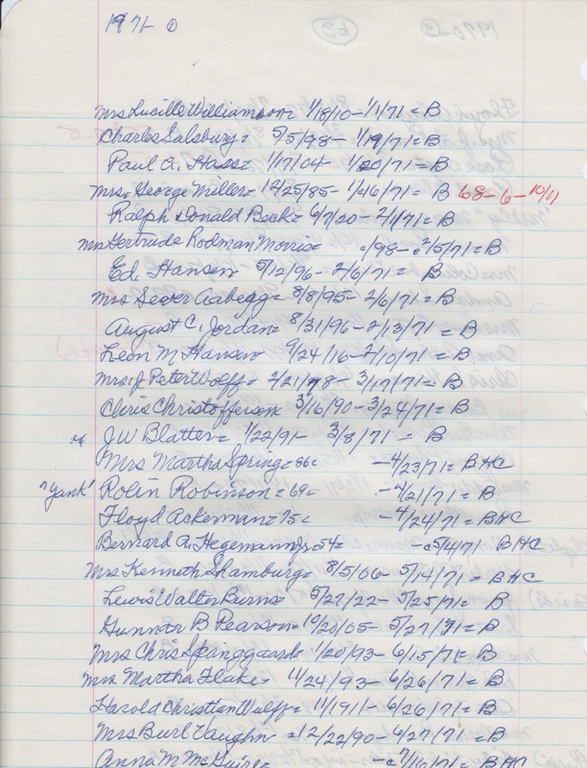 1971-
Mrs Lucille Williamson= 1/18/10- 1/1/71= B
Charles Salsbury= 5/5/98- 1/19/71= B
Paul A. Hass= 1/17/04- 1/20/71= B
Mrs. George Miller= 12/25/85- 1/16/71= B 68-6-10/11
Ralph Donald Beck= 6/7/20- 2/1/71= B
Mrs Gertrude Rodman Morris= /98- 2/5/71= B
Ed Hansen 5/12/96- 2/6/71= B
Mrs Aabegg= 8/8/95- 2/6/71= B
August C. Jordan= 8/31/96- 2/13/71= B
Leon M Hansen 9/24/16- 2/10/71= B
Mrs. J Peter Wolff= 2/21/98- 3/17/71= B
Chris Christofferson 3/16/90- 3/24/71= B
JW Blatter= 1/22/91- 3/8/71= B
Mrs Martha Spring=86= -4/23/71= BHC
"Yank" Rolin Robinson=69= -4/21/71= B
Floyd Ackerman=75= -4/24/71= BHC
Bernard A. Hegemann Jr=54= -c5/4/71 BHC
Mrs Kenneth Shamburg= 8/5/06- 5/14/71= BHC
Lewis Walter Burns 5/27/22- 5/25/71= B
Gunnar B Pearson= 10/20/05- 5/27/71= B
Mrs Chris Springgaard= 1/20/93- 6/15/71= B
Mrs Martha Flake= 11/24/93- 6/26/71= B
Harold Christian Wulff= 11/1911- 6/26/71= B
Mrs Burl Vaughn= 12/22/90- 6/27/71= B
Anna M -c7/16/71= BHC